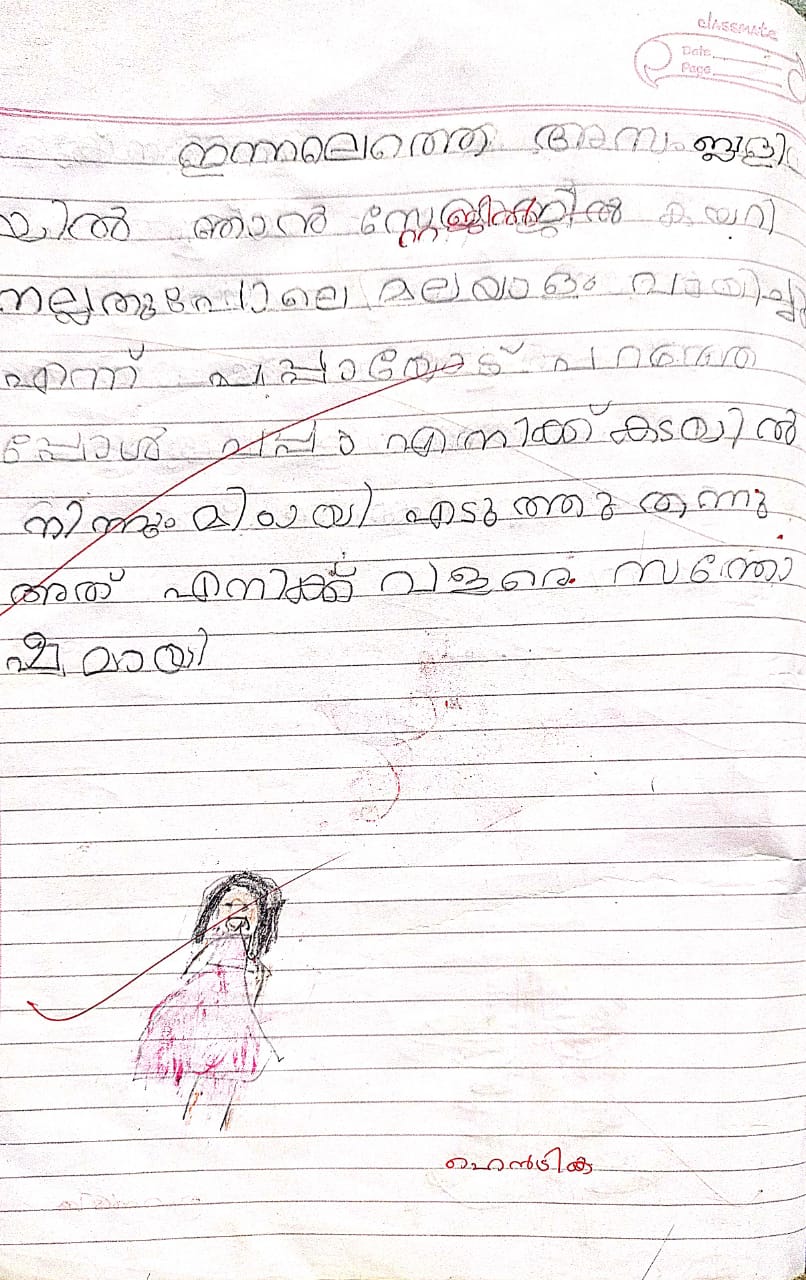 classmate
Date
Page
ഇന്നലെത്തെ അസംബ്ലി
യിൽ ഞാൻ സ്റ്റേജിൽ കയറി
നല്ലതുപോലെ മലയാളം വായിച്ചു
എന്ന് പപ്പായോട് പറഞ്ഞ
പ്പോൾ പപ്പാ എനിക്ക് കടയിൽ
നിന്നും മിഠായി എടുത്തു തന്നു
അത് എനിക്ക് വളരെ സന്തോ
ഷമായി